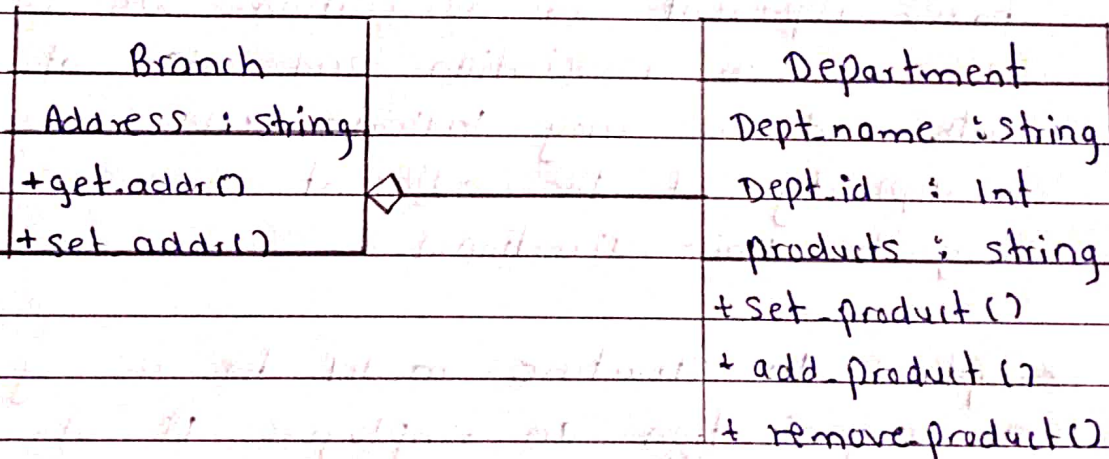 Branch
Address : string
+get.addr()
+set_addr()
Department
Dept_name : string
Dept_id : Int
products : string
+ set_product ()
+ add_product ()
+ remove_product()